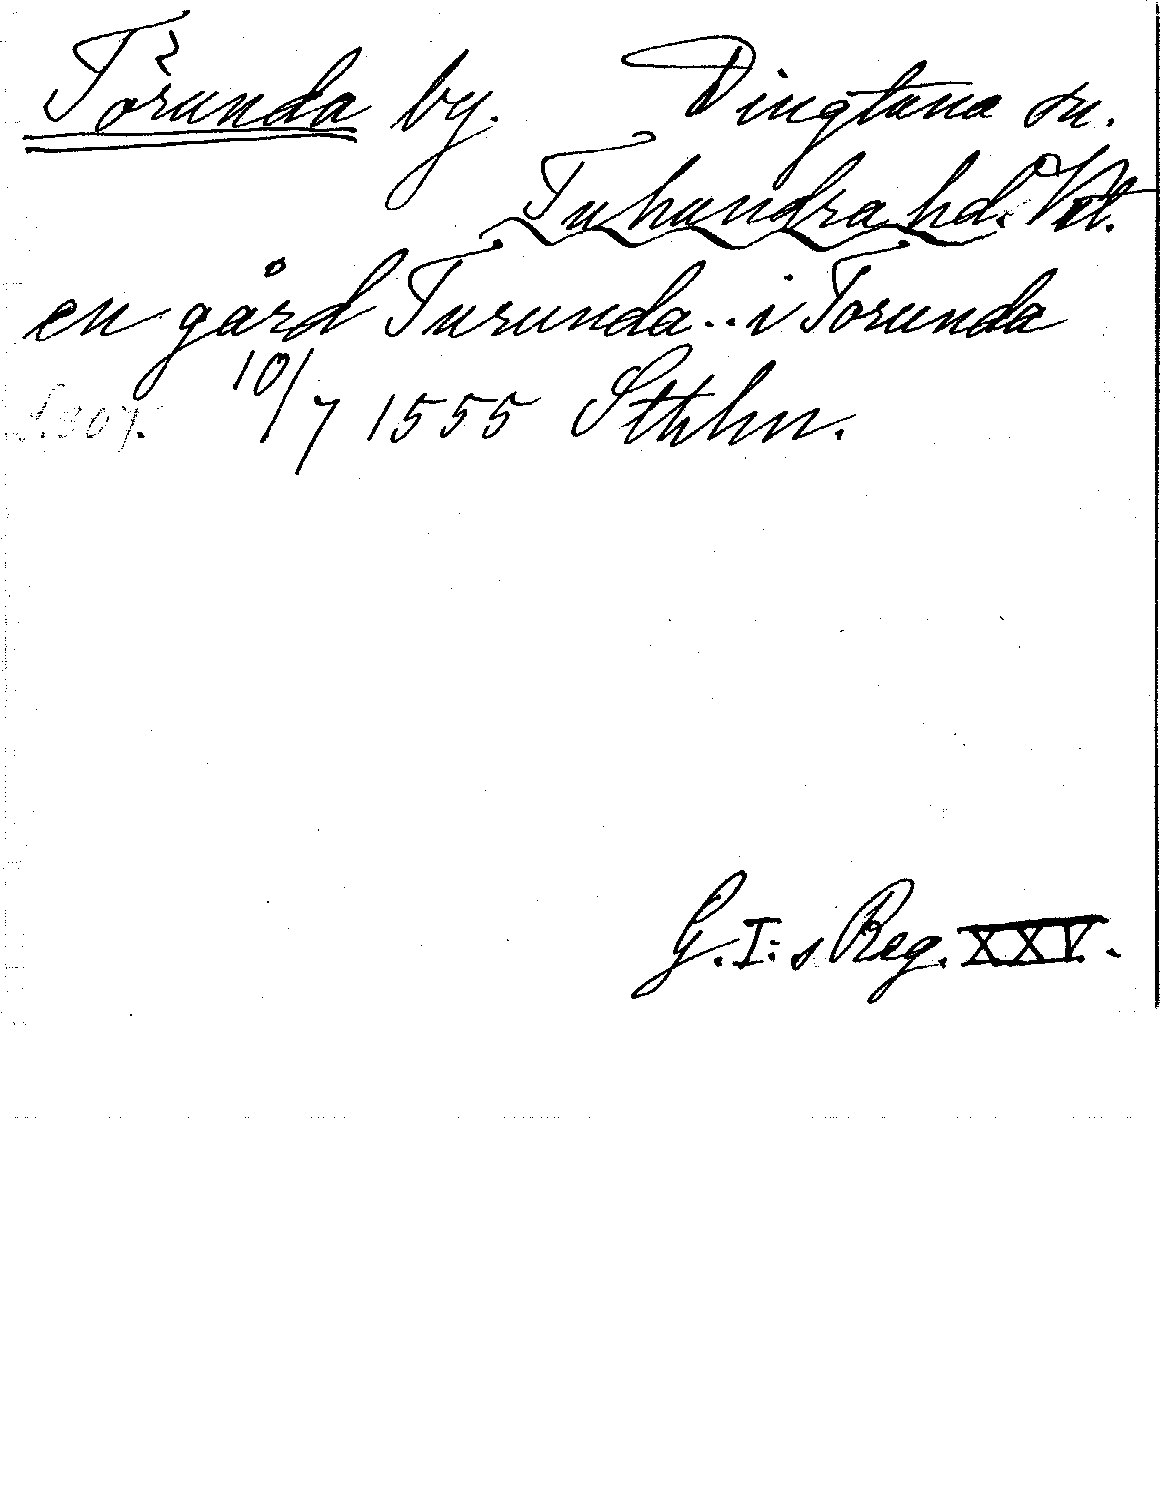 Törunda by. Dingtuna sn.
Tuhundra hd. Vstl.
en gård Turunda .. i Torunda
10/7 1555 Sthlm.
S. 307.
G. I:s Reg. XXV.